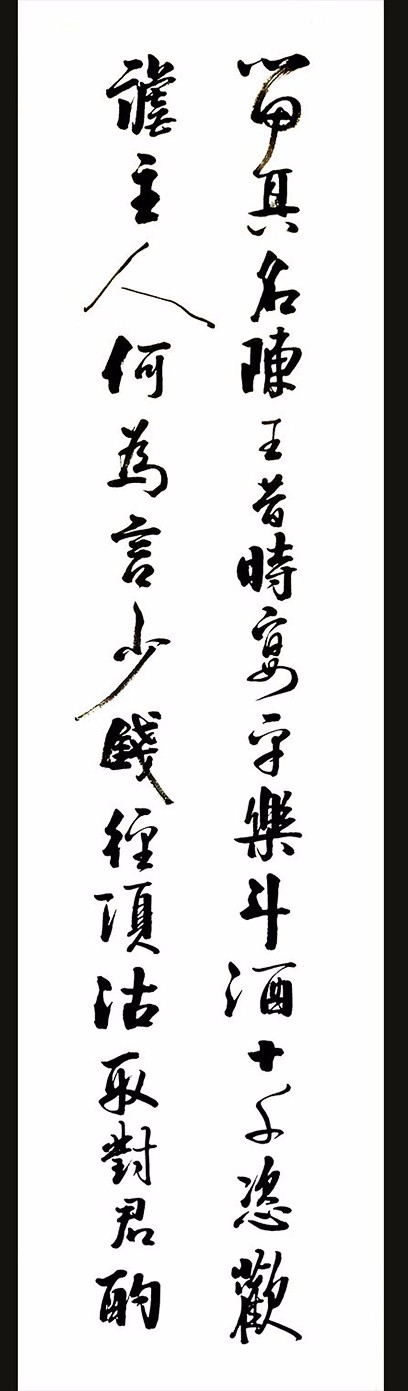 留其名陳王昔時宴平樂斗酒十千恣歡
謔主人何為言少錢徑須沽取對君酌